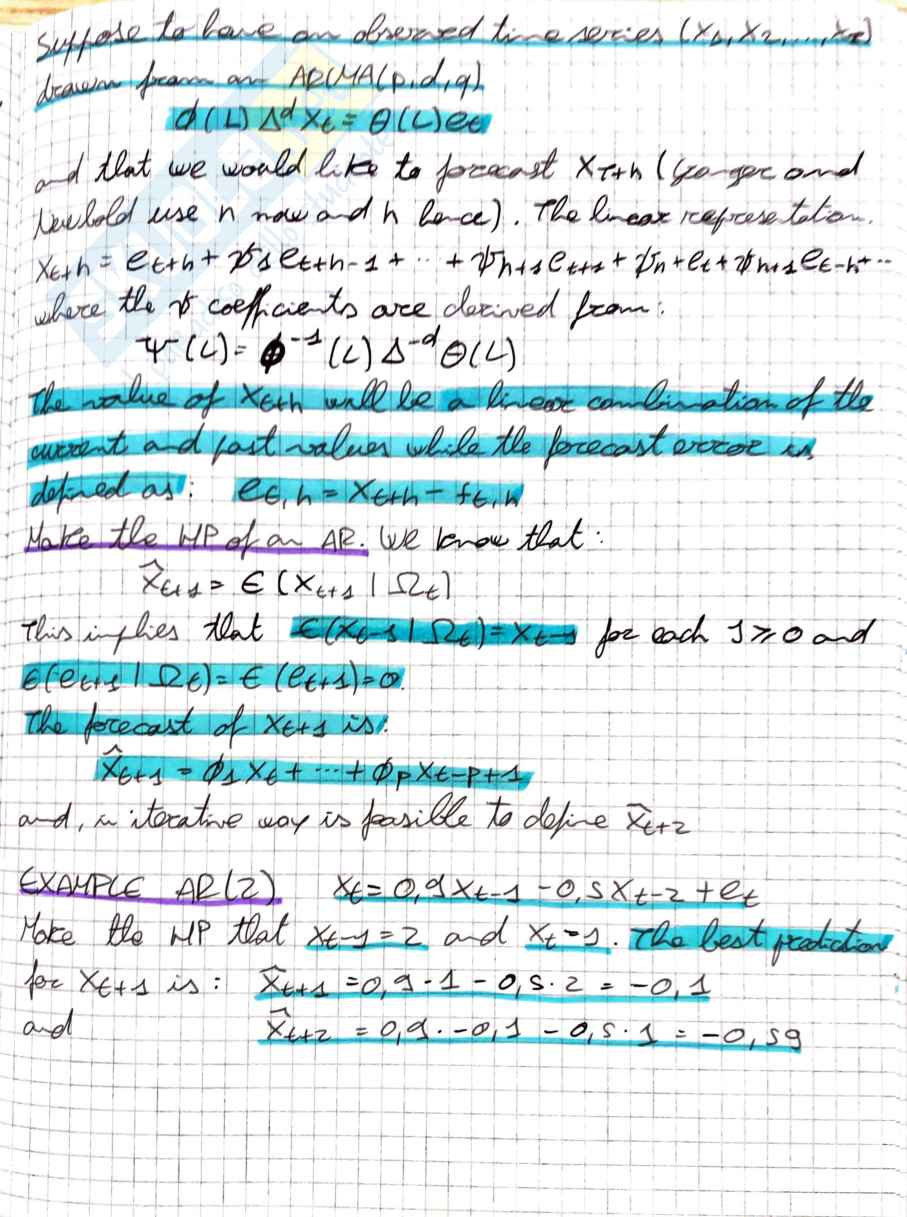 Suppose to have an observed time series (X1, X2, ..., Xt)
drawn from an ARIMA(p,d,q)
ϕ(L) Δ^d Xt = θ(L)et
and that we would like to forecast XT+h (Granger and
Newbold use n now and h hence). The linear representation.
Xt+h = et+h + ψ1 et+h-1 + ... + ψh+1 et+1 + ψh + et + ψh+1 et-h + ...
where the ψ coefficients are derived from:
Ψ(L) = ϕ^-1 (L) Δ^-d θ(L)
The value of Xt+h will be a linear combination of the
current and past values while the forecast error is
defined as: et,h = Xt+h - ft,h
Make the HP of an AR. We know that:
X̂t+1 = E (Xt+1 | Ωt)
This implies that E(Xt-J | Ωt) = Xt-J for each J ⩾ 0 and
E(et+1 | Ωt) = E (et+1) = 0.
The forecast of Xt+1 is:
X̂t+1 = ϕ1 Xt + ... + ϕp Xt-p+1
and, in iterative way is feasible to define X̂t+2
EXAMPLE AR(2) Xt = 0,9 Xt-1 - 0,5 Xt-2 + et
Make the HP that Xt-1 = 2 and Xt = 1. The best prediction
for Xt+1 is: X̂t+1 = 0,9 · 1 - 0,5 · 2 = -0,1
and X̂t+2 = 0,9 · -0,1 - 0,5 · 1 = -0,59